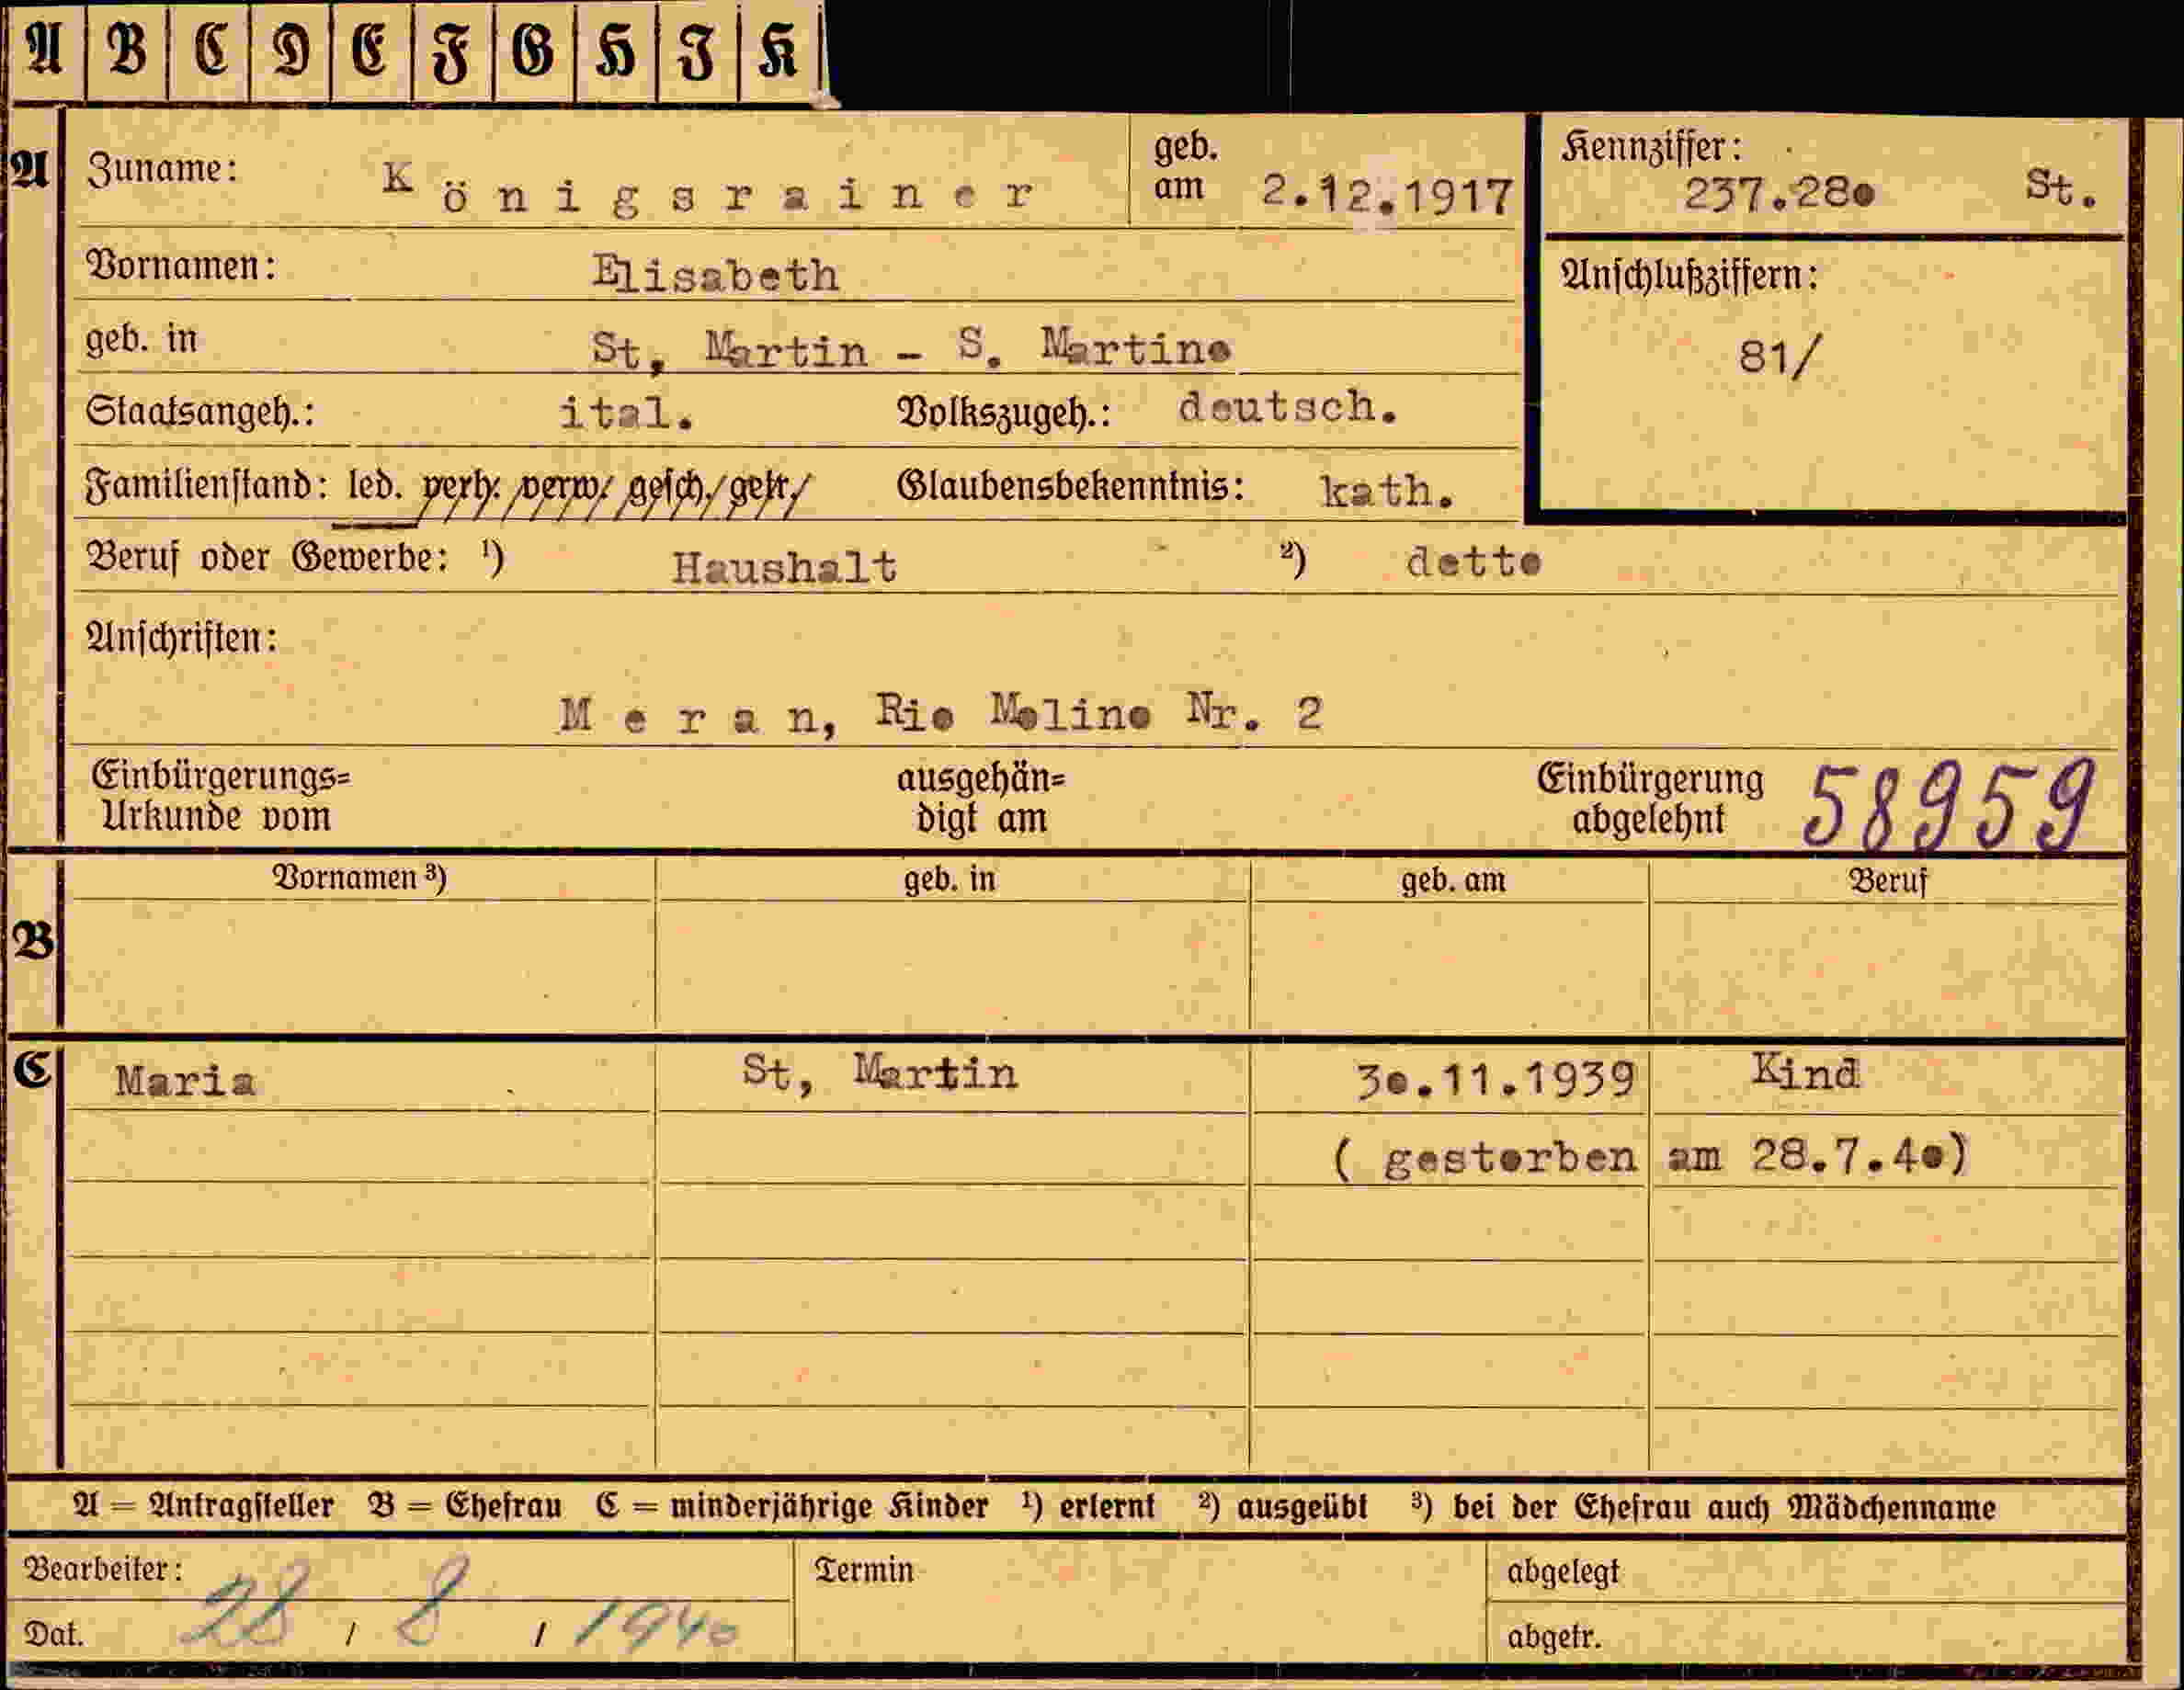 A B C D E F G H I K
A Zuname: Königsrainer geb. am 2.12.1917 Kennziffer: 237.280 St.
Vornamen: Elisabeth Anschlußziffern:
geb. in St, Martin - S. Martino 81/
Staatsangeh.: ital. Volkszugeh.: deutsch.
Familienstand: led. verh. verw. gesch. getr. Glaubensbekenntnis: kath.
Beruf oder Gewerbe: ¹) Haushalt ²) detto
Anschriften:
Meran, Rio Molino Nr. 2
Einbürgerungs= ausgehän= Einbürgerung 58959
Urkunde vom digt am abgelehnt
Vornamen ³) geb. in geb. am Beruf
B
C Maria St, Martin 30.11.1939 Kind
( gestorben am 28.7.40)
A = Antragsteller B = Ehefrau C = minderjährige Kinder ¹) erlernt ²) ausgeübt ³) bei der Ehefrau auch Mädchenname
Bearbeiter: Termin abgelegt
Dat. 28 / 8 / 1940 abgetr.